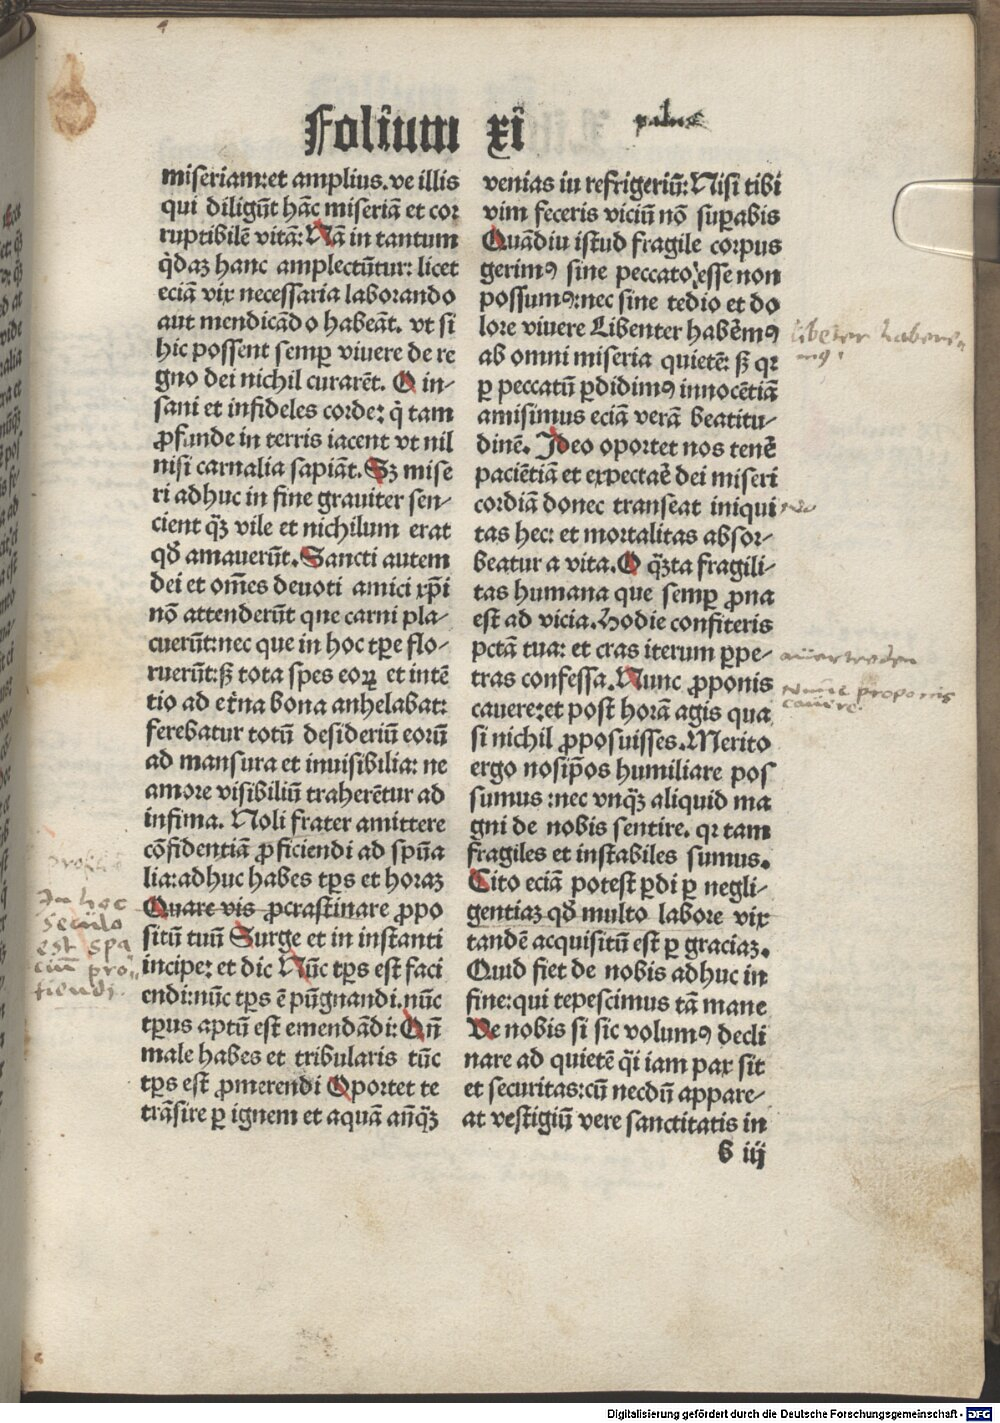 Folium xi
miseriam:et amplius. ve illis
qui diligūt hāc miseriā et cor
ruptibilē vitā: Nā in tantum
q̇daꝫ hanc amplectūtur: licet
eciā vix necessaria laborando
aut mendicādo habeāt. vt si
hic possent semꝑ viuere de re
gno dei nichil curarēt. O in-
sani et infideles corde: q̇ tam
ꝓfunde in terris iacent vt nil
nisi carnalia sapiāt. Sꝫ mise
ri adhuc in fine grauiter sen-
cient q̄ꝫ vile et nichilum erat
qđ amauerūt. Sancti autem
dei et om̄es deuoti amici xp̄i
nō attenderūt que carni pla-
cuerūt:nec que in hoc tp̄e flo-
ruerūt:sꝫ tota spes eoꝝ et intē
tio ad et̄na bona anhelabat:
ferebatur totū desideriū eorū
ad mansura et inuisibilia: ne
amore visibiliū traherētur ad
infima. Noli frater amittere
cōfidentiā ꝓficiendi ad spūa
lia:adhuc habes tp̄s et horaꝫ
Quare vis ꝓcrastinare ꝓpo
sitū tuū Surge et in instanti
incipe: et dic Nūc tp̄s est faci
endi:nūc tp̄s ē pūgnandi.nūc
tp̄us aptū est emendādi: Qn̄
male habes et tribularis tūc
tp̄s est ꝓmerendi Oportet te
trāsire ꝑ ignem et aquā an̄q̄ꝫ
venias in refrigeriū: Nisi tibi
vim feceris viciū nō suꝑabis
Quādiu istud fragile corpus
gerimꝰ sine peccato esse non
possumꝰ:nec sine tedio et do
lore viuere Libenter habēmꝰ
ab omni miseria quietē: sꝫ qꝛ
ꝑ peccatū ꝑdidimꝰ innocētiā
amisimus eciā verā beatitu-
dinē. Ideo oportet nos tenē
paciētiā et expectaē dei miseri
cordiā donec transeat iniqui
tas hec: et mortalitas absor-
beatur a vita. O q̄ꝫta fragili-
tas humana que semꝑ ꝓna
est ad vicia. Hodie confiteris
pctā tua: et cras iterum ꝑpe-
tras confessa. Nunc ꝓponis
cauere:et post horā agis qua
si nichil ꝓposuisses. Merito
ergo nosip̄os humiliare pos
sumus :nec vnq̄ꝫ aliquid ma
gni de nobis sentire. qꝛ tam
fragiles et instabiles sumus.
Cito eciā potest ꝑdi ꝑ negli-
gentiaꝫ qđ multo labore vix
tandē acquisitū est ꝑ graciaꝫ.
Quid fiet de nobis adhuc in
fine:qui tepescimus tā mane
Ve nobis si sic volumꝰ decli
nare ad quietē q̄i iam pax sit
et securitas:cū necdū appare-
at vestigiū vere sanctitatis in
b iij
In hoc
seculo
est spa
cium pro-
ficiendi
Nunc proponis
cavere
Digitalisierung gefördert durch die Deutsche Forschungsgemeinschaft - DFG